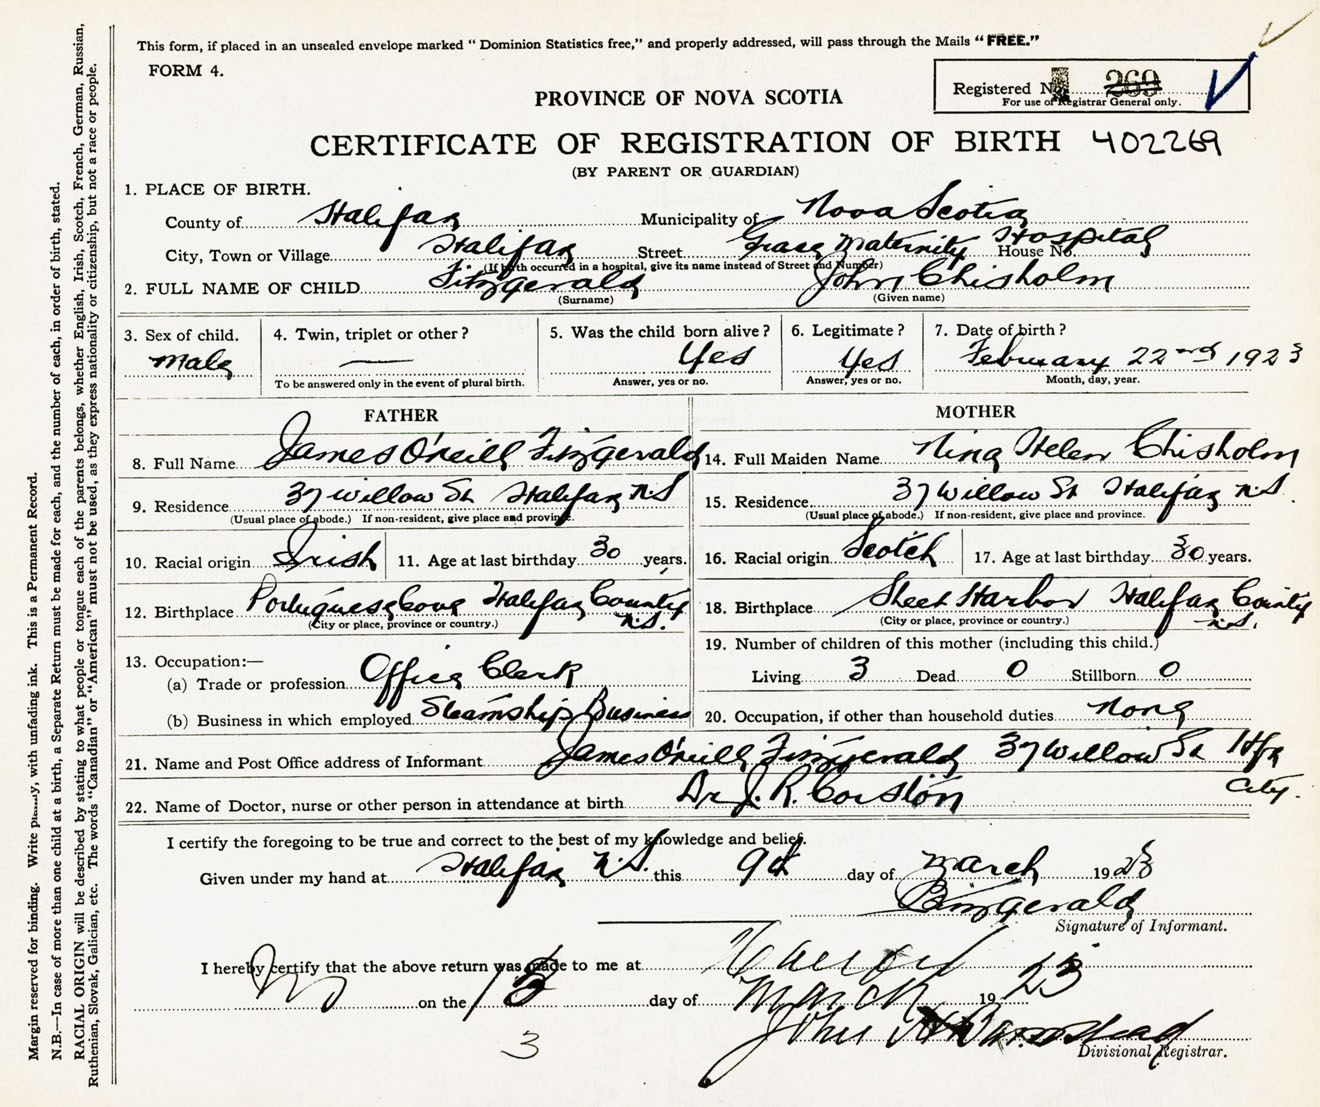 This form, if placed in an unsealed envelope marked “Dominion Statistics free,” and properly addressed, will pass through the Mails “FREE.”
FORM 4.
Registered No. 269
For use of Registrar General only.
PROVINCE OF NOVA SCOTIA
CERTIFICATE OF REGISTRATION OF BIRTH 402269
(BY PARENT OR GUARDIAN)
1. PLACE OF BIRTH.
County of Halifax Municipality of Nova Scotia
City, Town or Village Halifax Street Grace Maternity Hospital House No.
(If birth occurred in a hospital, give its name instead of Street and Number)
2. FULL NAME OF CHILD Fitzgerald John Chisholm
(Surname) (Given name)
3. Sex of child. 4. Twin, triplet or other? 5. Was the child born alive? 6. Legitimate? 7. Date of birth?
Male — Yes Yes February 22nd 1923
To be answered only in the event of plural birth. Answer, yes or no. Answer, yes or no. Month, day, year.
FATHER MOTHER
8. Full Name James O'neill Fitzgerald 14. Full Maiden Name Nina Helen Chisholm
9. Residence 37 Willow St Halifax N.S 15. Residence 37 Willow St Halifax N.S.
(Usual place of abode.) If non-resident, give place and province. (Usual place of abode.) If non-resident, give place and province.
10. Racial origin Irish 11. Age at last birthday 30 years. 16. Racial origin Scotch 17. Age at last birthday 30 years.
12. Birthplace Portuguese Cove Halifax County N.S. 18. Birthplace Sheet Harbor Halifax County N.S.
(City or place, province or country.) (City or place, province or country.)
13. Occupation:— 19. Number of children of this mother (including this child.)
(a) Trade or profession Office Clerk Living 3 Dead 0 Stillborn 0
(b) Business in which employed Steamship Business 20. Occupation, if other than household duties None
21. Name and Post Office address of Informant James O'neill Fitzgerald 37 Willow St Hfx City.
22. Name of Doctor, nurse or other person in attendance at birth Dr J. R. Corston
I certify the foregoing to be true and correct to the best of my knowledge and belief.
Given under my hand at Halifax N.S. this 9th day of March 1923
Fitzgerald
Signature of Informant.
I hereby certify that the above return was made to me at Halifax
on the 13 day of March 1923
John
Divisional Registrar.
3
Margin reserved for binding. Write plainly, with unfading ink. This is a Permanent Record.
N.B.—In case of more than one child at a birth, a Separate Return must be made for each, and the number of each, in order of birth, stated.
RACIAL ORIGIN will be described by stating to what people or tongue each of the parents belongs, whether English, Irish, Scotch, French, German, Russian,
Ruthenian, Slovak, Galician, etc. The words “Canadian” or “American” must not be used, as they express nationality or citizenship, but not a race or people.